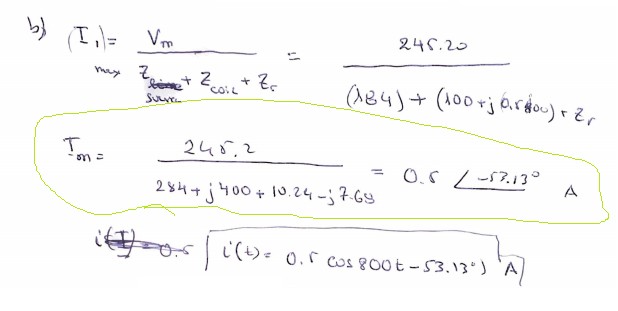 b) (I₁) = Vm / (Z + Z coil + Zr) = 245.20 / ((184) + (100 + j 0.5 800) + Zr)
max
Im = 245.2 / (284 + j400 + 10.24 - j7.68) = 0.5 ∠-53.13° A
i(t) = 0.5 cos 800t - 53.13°) A